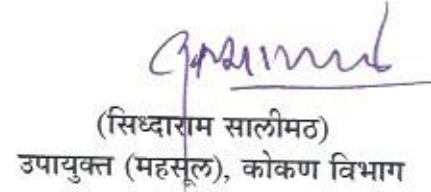 (सिध्दाराम सालीमठ)
उपायुक्त (महसूल), कोकण विभाग